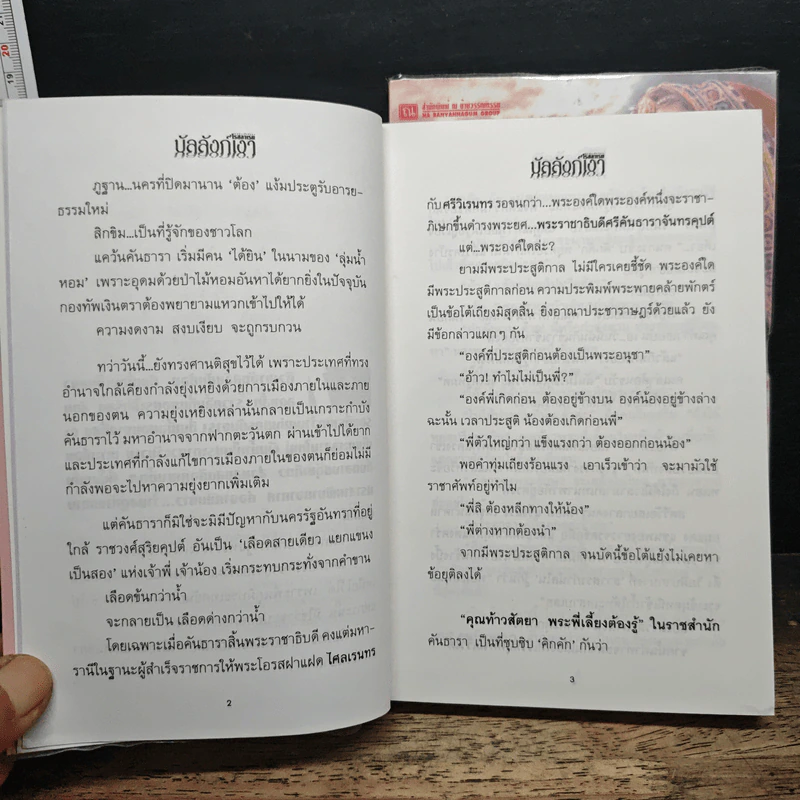 มัลลังก์เงา
ภูฐาน...นครที่ปิดมานาน ‘ต้อง’ แง้มประตูรับอารย-
ธรรมใหม่
สิกขิม...เป็นที่รู้จักของชาวโลก
แคว้นคันธารา เริ่มมีคน ‘ได้ยิน’ ในนามของ ‘ลุ่มน้ำ
หอม’ เพราะอุดมด้วยป่าไม้หอมอันหาได้ยากยิ่งในปัจจุบัน
กองทัพเงินตราต้องพยายามแหวกเข้าไปให้ได้
ความงดงาม สงบเงียบ จะถูกรบกวน
ทว่าวันนี้...ยังทรงศานติสุขไว้ได้ เพราะประเทศที่ทรง
อำนาจใกล้เคียงกำลังยุ่งเหยิงด้วยการเมืองภายในและภาย
นอกของตน ความยุ่งเหยิงเหล่านั้นกลายเป็นเกราะกำบัง
คันธาราไว้ มหาอำนาจจากฟากตะวันตก ผ่านเข้าไปได้ยาก
และประเทศที่กำลังแก้ไขการเมืองภายในของตนก็ย่อมไม่มี
กำลังพอจะไปหาความยุ่งยากเพิ่มเติม
แต่คันธาราก็มิใช่จะมิมีปัญหากับนครรัฐอันทราที่อยู่
ใกล้ ราชวงศ์สุริยคุปต์ อันเป็น ‘เลือดสายเดียว แยกแขนง
เป็นสอง’ แห่งเจ้าพี่ เจ้าน้อง เริ่มกระทบกระทั่งจากคำขาน
เลือดข้นกว่าน้ำ
จะกลายเป็น เลือดต่างกว่าน้ำ
โดยเฉพาะเมื่อคันธาราสิ้นพระราชาธิบดี คงแต่มหา-
รานีในฐานะผู้สำเร็จราชการให้พระโอรสฝาแฝด ไศลเรนทร
2
มัลลังก์เงา
กับศรีวิเรนทร รอจนกว่า...พระองค์ใดพระองค์หนึ่งจะราชา-
ภิเษกขึ้นดำรงพระยศ...พระราชาธิบดีศรีคันธาราจันทรคุปต์
แต่...พระองค์ใดล่ะ?
ยามมีพระประสูติกาล ไม่มีใครเคยชี้ชัด พระองค์ใด
มีพระประสูติกาลก่อน ความประพิมพ์ประพายคล้ายพักตร์
เป็นข้อโต้เถียงมิสุดสิ้น ยิ่งอาณาประชาราษฎร์ด้วยแล้ว ยัง
มีข้อกล่าวแผกๆ กัน
“องค์ที่ประสูติก่อนต้องเป็นพระอนุชา”
“อ้าว! ทำไมไม่เป็นพี่?”
“องค์พี่เกิดก่อน ต้องอยู่ข้างบน องค์น้องอยู่ข้างล่าง
ฉะนั้น เวลาประสูติ น้องต้องเกิดก่อนพี่”
“พี่ตัวใหญ่กว่า แข็งแรงกว่า ต้องออกก่อนน้อง”
พอคำทุ่มเถียงร้อนแรง เอาเร็วเข้าว่า จะมามัวใช้
ราชาศัพท์อยู่ทำไม
“พี่สิ ต้องหลีกทางให้น้อง”
“พี่ต่างหากต้องนำ”
จากมีพระประสูติกาล จนบัดนี้ข้อโต้แย้งไม่เคยหา
ข้อยุติลงได้
“คุณท้าวสัตยา พระพี่เลี้ยงต้องรู้” ในราชสำนัก
คันธารา เป็นที่ซุบซิบ ‘คิกคัก’ กันว่า
3
สำนักพิมพ์ ณ บ้านวรรณกรรม
NA BANVANNAGUM GROUP